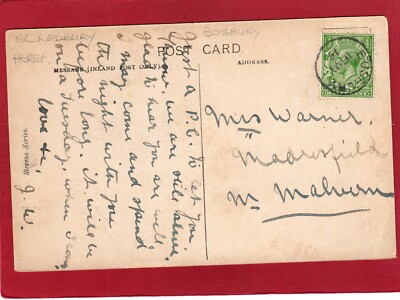 NR. LEDBURY
HEREF.
BOSBURY
POST CARD.
MESSAGE (INLAND POST ONLY).
ADDRESS.
Just a P.C. to let you
know, we are still alive.
glad to hear you are well.
I may come and spend
the night with you
before long. it will be
on a Tuesday, when I come
love &c. J. W.
Mrs Warner,
Madresfield
Nr. Malvern
Stevens Series.